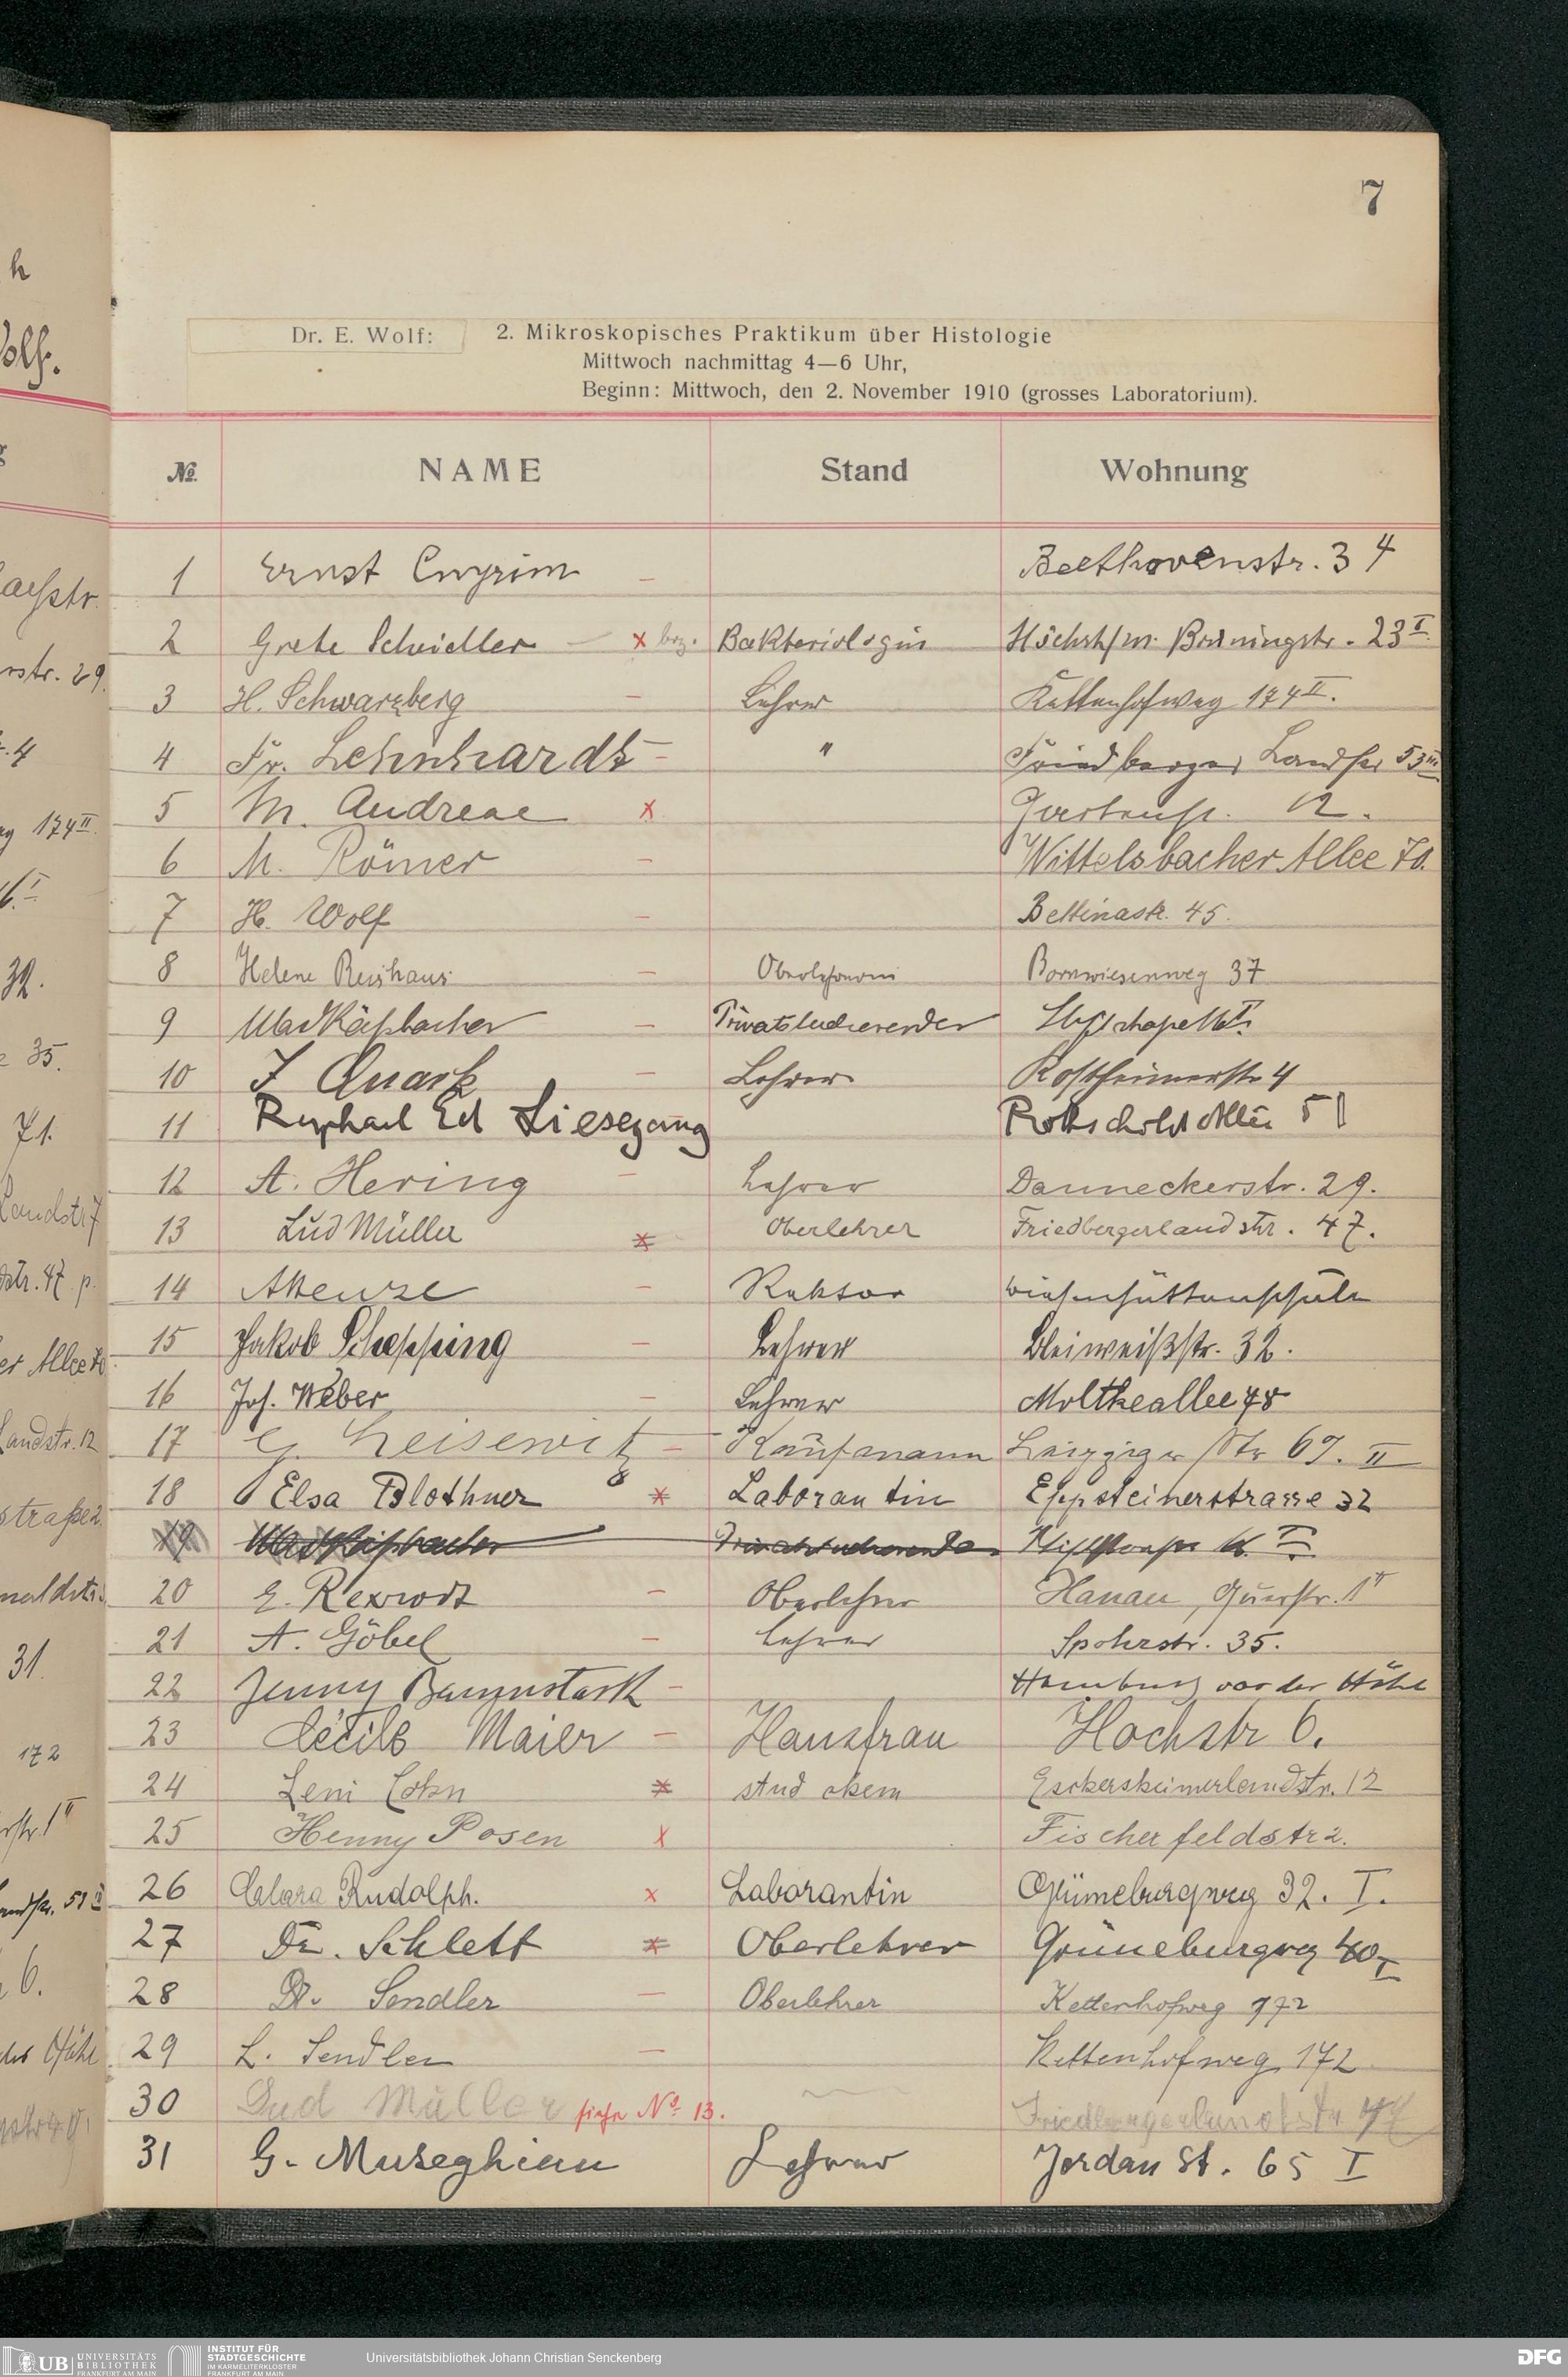 7
Dr. E. Wolf: 2. Mikroskopisches Praktikum über Histologie
Mittwoch nachmittag 4—6 Uhr,
Beginn: Mittwoch, den 2. November 1910 (grosses Laboratorium).
№ NAME Stand Wohnung
1 Ernst Beethovenstr. 34
2 Grete x Bakteriologin Höchst/M. Brüningstr. 23 I
3 H. Schwarzberg – Lehrer Kettenhofweg 174 II.
4 Fr. Lehnhardt – " Friedberger Landstr 53 III
5 M. Andreae x 12.
6 M. Römer – Wittelsbacher Allee 70.
7 H. Wolf – Bettinastr. 45.
8 Helene – Bornwiesenweg 37
9 – Privatstudierender
10 J Quark – Lehrer Kostheimerstr 4
11 Raphael Ed Liesegang Rothschild Allee 51
12 A. Hering – Lehrer Danneckerstr. 29.
13 Lud Müller x Oberlehrer Friedbergerlandstr. 47.
14 A Henze – Rektor Wiesenhüttenschule
15 Jakob Schepping – Lehrer Bleiweißstr. 32.
16 Joh. Weber – Lehrer Moltkeallee 48
17 G. Leisewitz – Kaufmann Leipziger Str 67. II
18 Elsa Blothner x Laborantin Eppsteinerstrasse 32
19
20 E. Rexrodt – Oberlehrer Hanau, Querstr. 1 II
21 A. Göbel – Lehrer Spohrstr. 35.
22 Jenny Baumstark – Homburg vor der Höhe
23 Cécile Maier – Hausfrau Hochstr 6.
24 Leni Cohn x stud chem Eschersheimerlandstr. 12
25 Henny Posen x Fischerfeldstr 2.
26 Clara Rudolph. x Laborantin Grüneburgweg 32. I.
27 Dr. Schlett x Oberlehrer Grüneburgweg 40 I
28 Dr. Sendler – Oberlehrer Kettenhofweg 172
29 L. Sendler – Kettenhofweg 172
30 Lud Müller siehe No. 13. Friedbergerlandstr 47
31 G. Museghian Lehrer Jordan St. 65 I
UB UNIVERSITÄTS
BIBLIOTHEK
FRANKFURT AM MAIN
INSTITUT FÜR
STADTGESCHICHTE
IM KARMELITERKLOSTER
FRANKFURT AM MAIN
Universitätsbibliothek Johann Christian Senckenberg
DFG